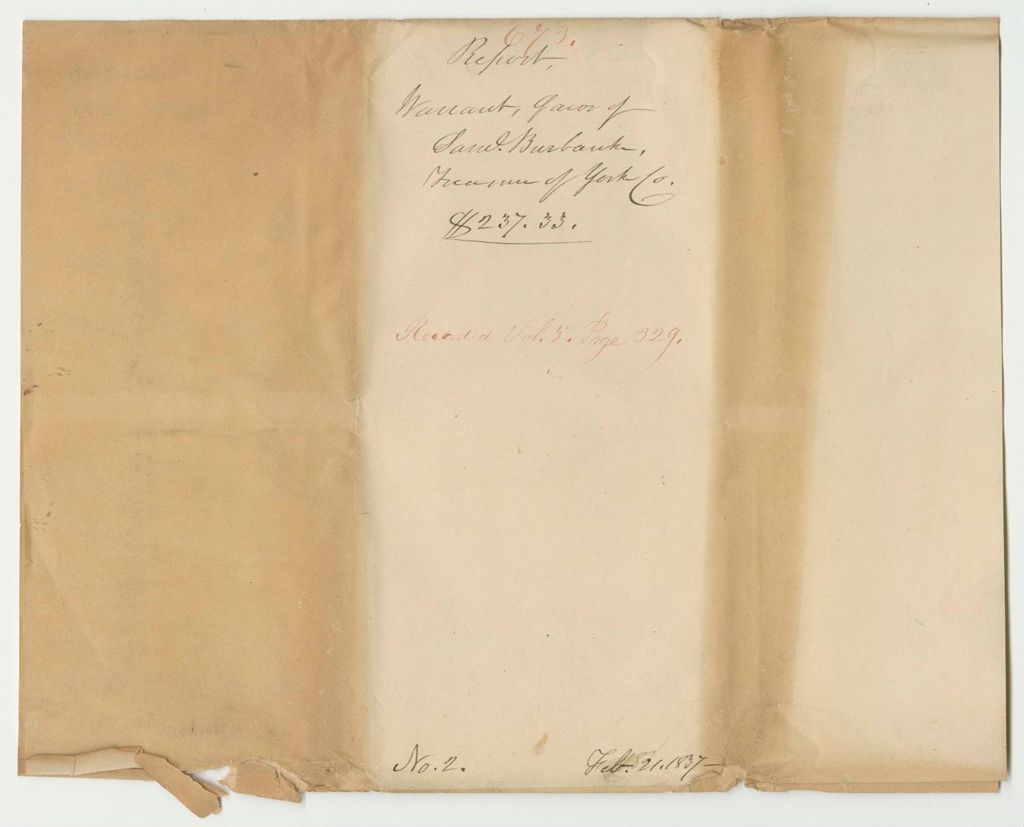 673.
Report,
Warrant, favor of
Saml. Burbank,
Treasurer of York Co.
$237.33.
Recorded Vol. 5. Page 329.
No. 2.
Feb. 21. 1837